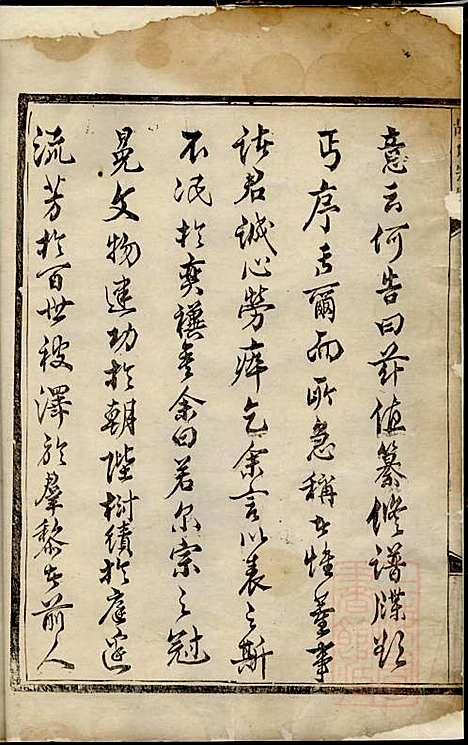 意云何告曰茲值纂修譜牒欵
丐序弁爾而所急稱者惟董事
諸君誠心勞瘁乞余言以表之斯
不泯於奕禩矣余曰若尔宗之冠
冕文物建功於朝陛樹績於庭
流芳於百世被澤於羣黎者前人